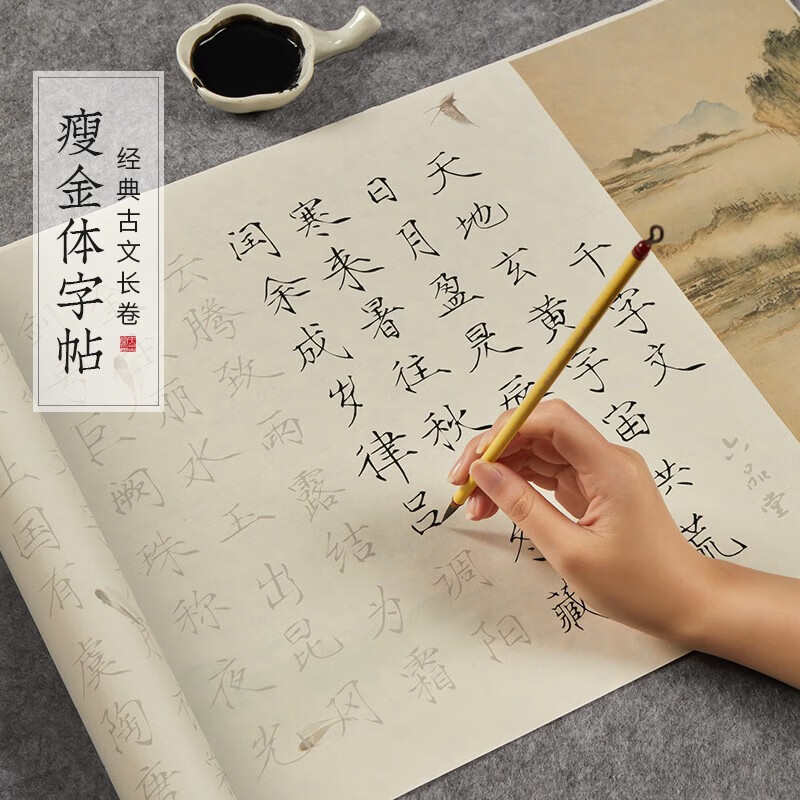 瘦金体字帖
经典古文长卷
六品堂
千字文
天地玄黄宇宙洪荒
日月盈昃辰
寒来暑往秋冬藏
闰余成岁律吕调阳
云腾致雨露结为霜
丽水玉出昆冈
巨阙珠称夜光
国有虞陶唐